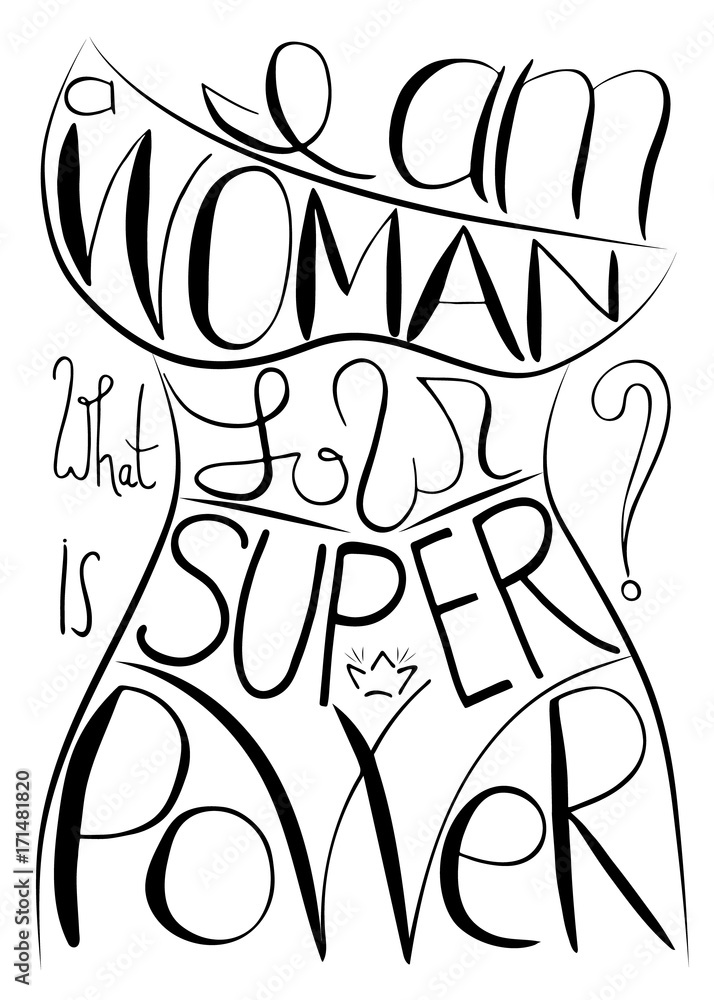 I am
a WOMAN
What is your
SUPER
PoWeR ?
Adobe Stock | #171481820